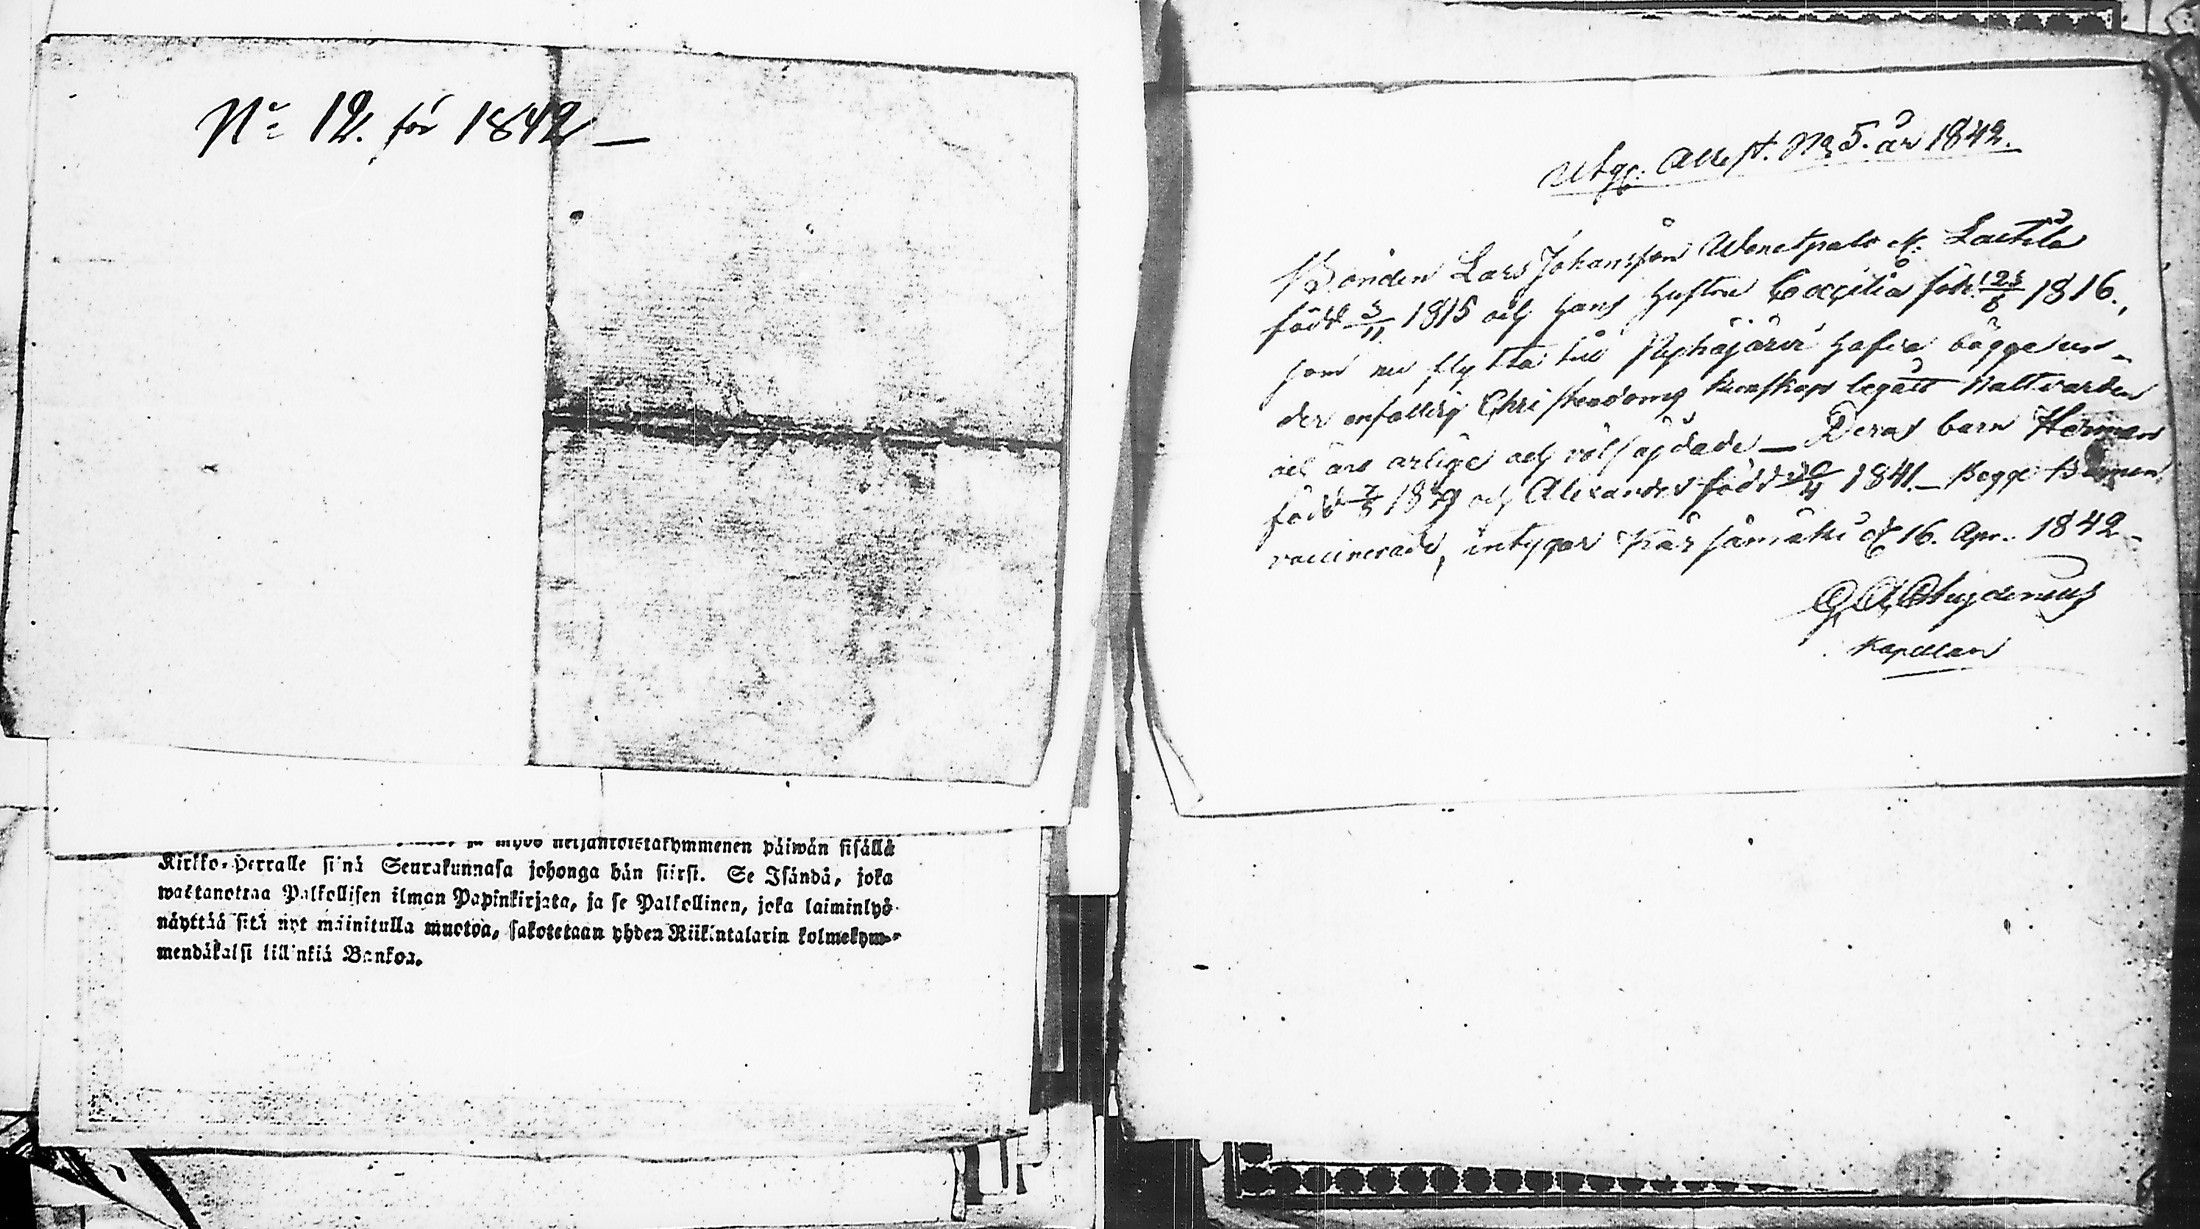 No 12. för 1842 —
Kirkko-Herralle sinä Seurakunnasa johonga hän siirsi. Se Isändä, joka
wastanottaa Palkollisen ilman Papinkirjata, ja se Palkollinen, joka laiminlyö
näyttää sitä nyt mainitulla muotoa, sakotetaan yhden Riikintalarin kolmekym-
mendäkaksi killinkiä Bankoa.
Utgf. Attest. No 5. år 1842.
Bonden Lars Johansson Wenetpalo Laetila
född 3/11 1815 och hans hustru Cæcilia föd. 23/8 1816.,
som nu flytta till Pyhäjärvi hafva bägge un-
der enfaldig Christendoms kunskap begått Nattvarden
och äro ärlige och välfrejdade — Deras barn Herman
född och Alexander född 1841. — Begge Barnen
vaccinerade, intygar Kärsämäki 16. Apr. 1842 -
Kapellan